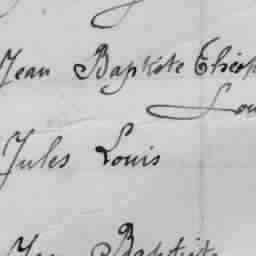 Jean Baptiste
Lou
Jules Louis
Baptist